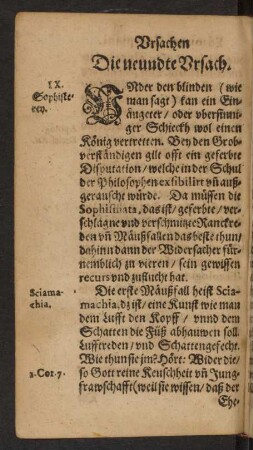 Vrsachen
Die neundte Vrsach.
IX.
Sophiste-
rey.
VNder den blinden (wie
man sagt) kan ein Ein-
äugeter / oder vbersinni-
ger Schieckh wol einen
König vertretten. Bey den Grob-
verständigen gilt offt ein geferbte
Disputation / welche in der Schul
der Philosophen exsibilirt vñ auß-
gerauscht würde. Da müssen die
Sophismata, das ist / geferbte / ver-
schlagne vnd verschmitzte Rancke-
den vñ Mäußfallen das beste thun /
dahinn dann der Widersacher für-
nemblich zu vieren / sein gewissen
recurs vnd zuflucht hat.
Sciama-
chia.
Die erste Mäußfall heist Scia-
machia, dz ist / eine Kunst wie man
dem Lufft den Kopff / vnnd dem
Schatten die Füß abhawen soll.
Lufftreden / vnd Schattengefecht.
Wie thun sie jm? Hört: Wider die /
1. Cor. 7.
so Gott reine Keuschheit vñ Jung-
frawschafft (weil sie wissen / daß der
Ehe-